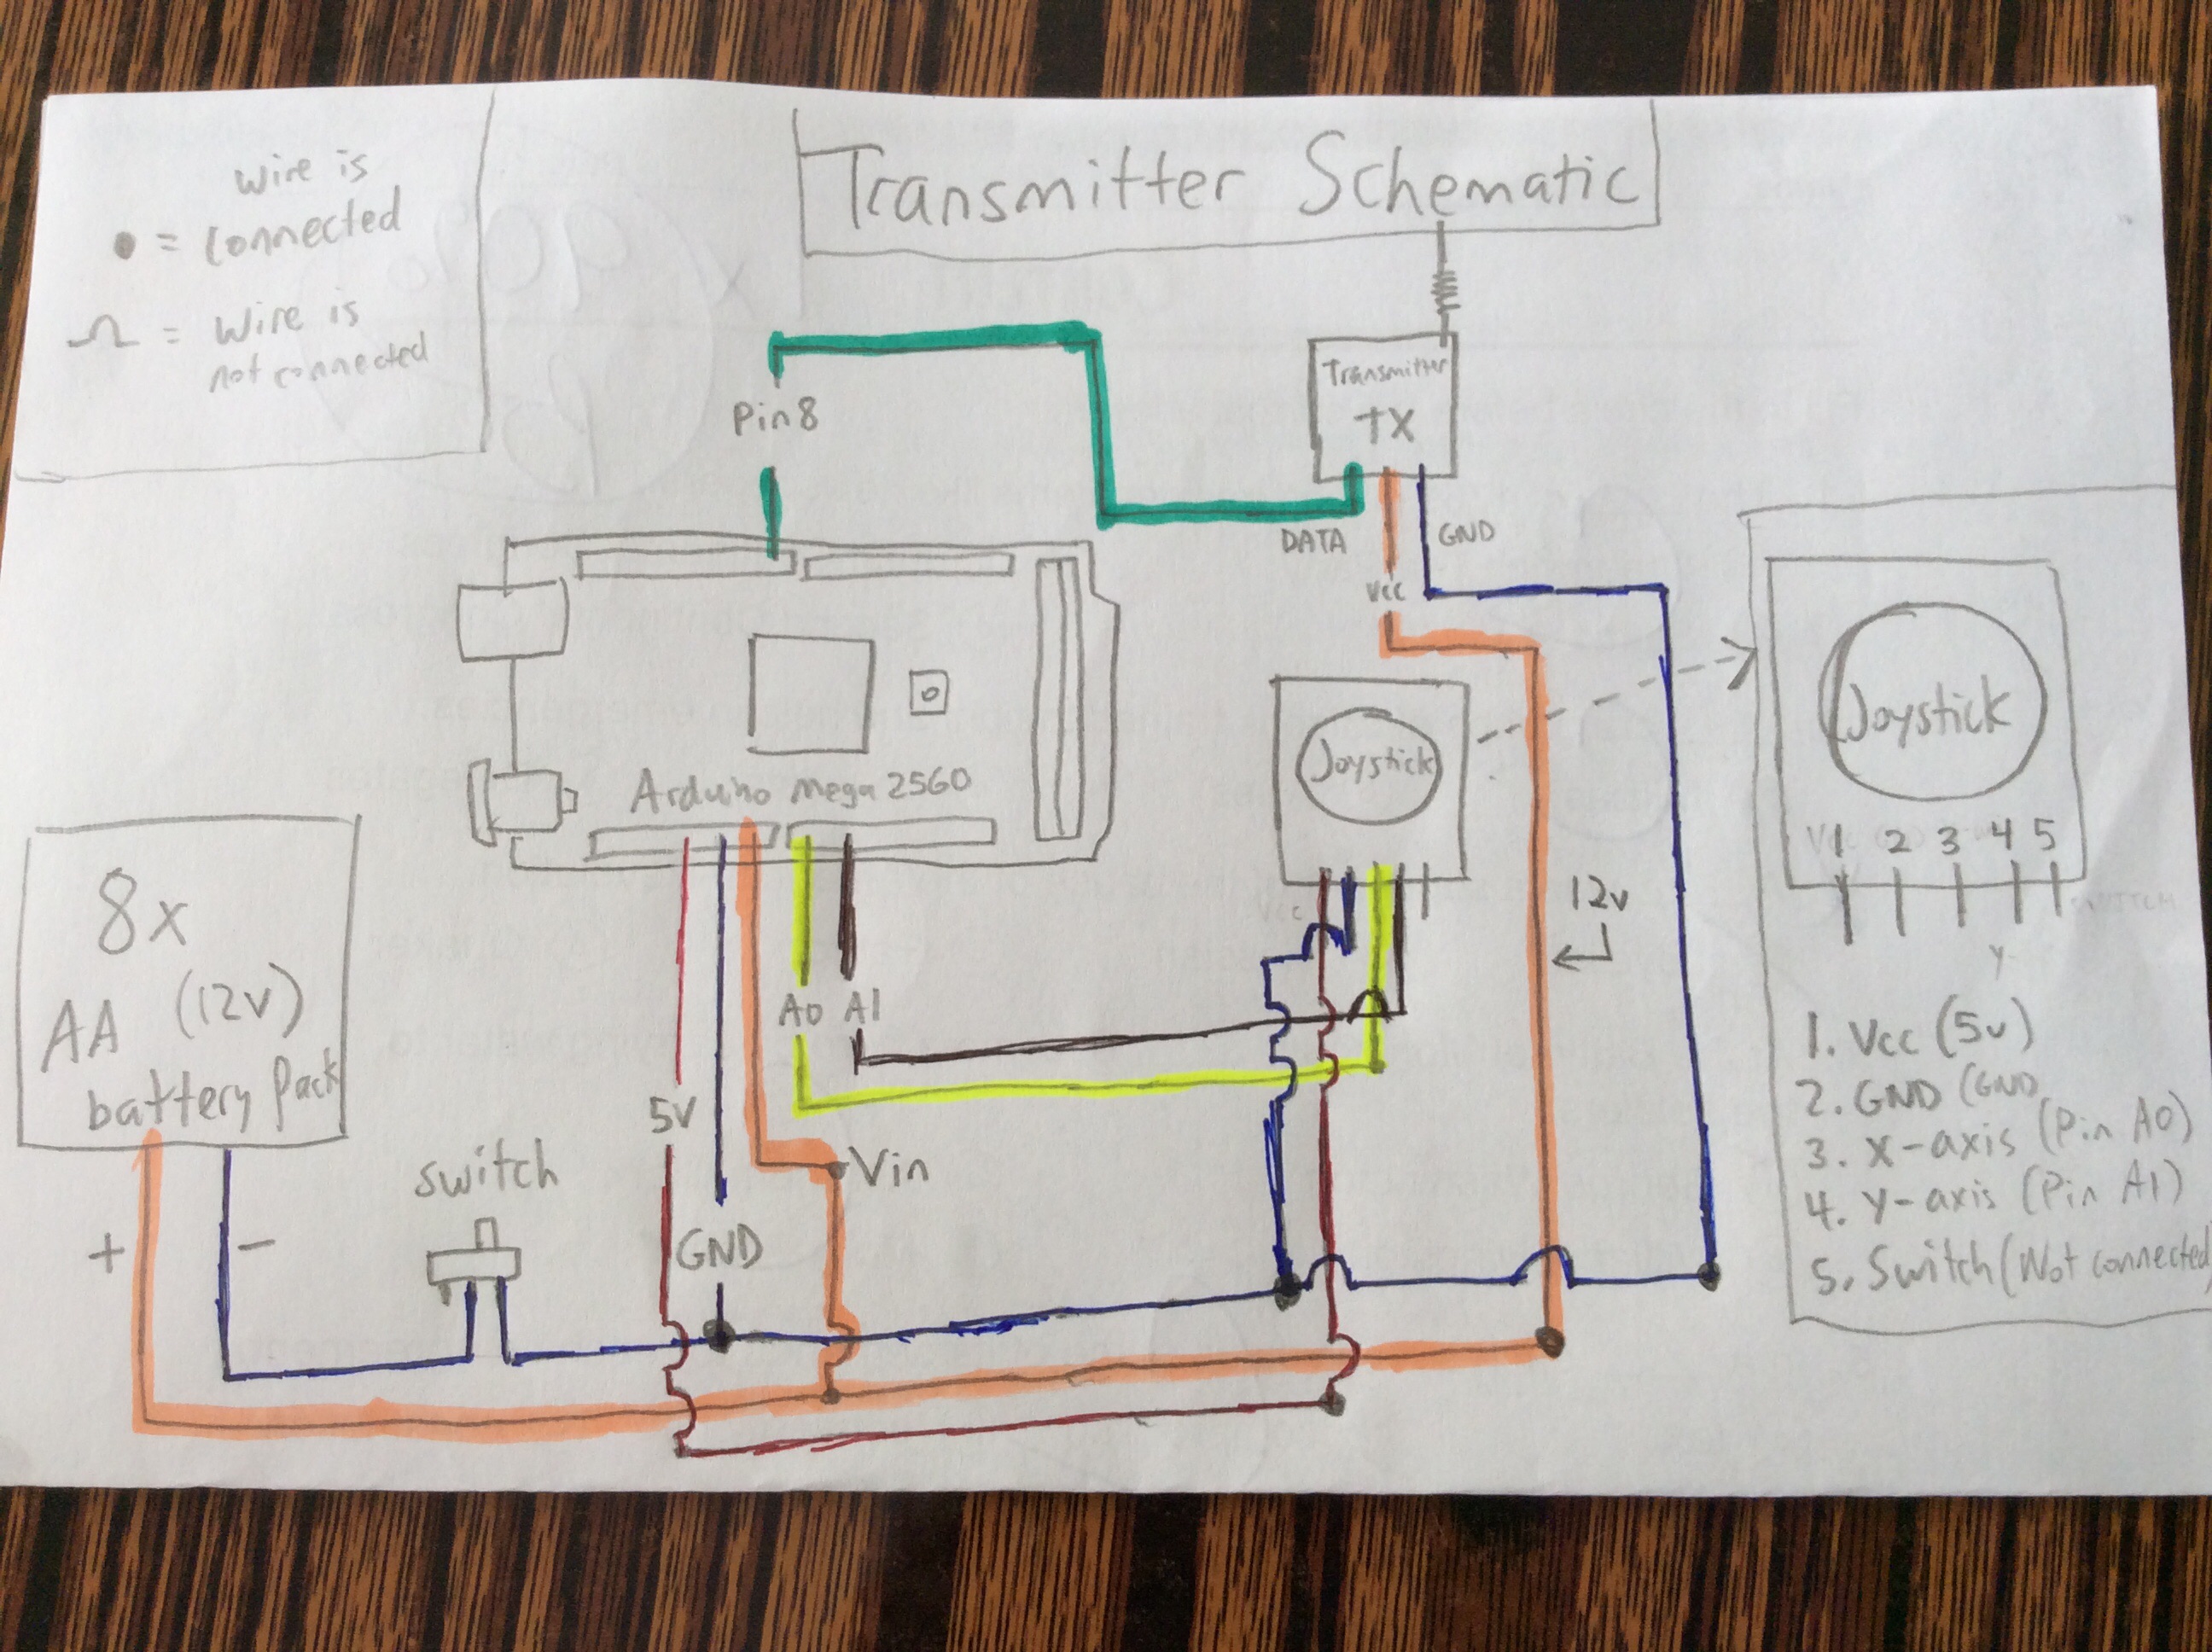 Wire is
• = connected
Ω = Wire is
not connected
Transmitter Schematic
Transmitter
TX
Pin 8
DATA
GND
Vcc
Joystick
Joystick
Arduino Mega 2560
1 2 3 4 5
8x
AA (12v)
battery pack
+
-
switch
5V
GND
Vin
A0 A1
Vcc
12v
SWITCH
Y
1. Vcc (5v)
2. GND (GND
3. X-axis (Pin A0)
4. Y-axis (Pin A1)
5. Switch (Not connected)